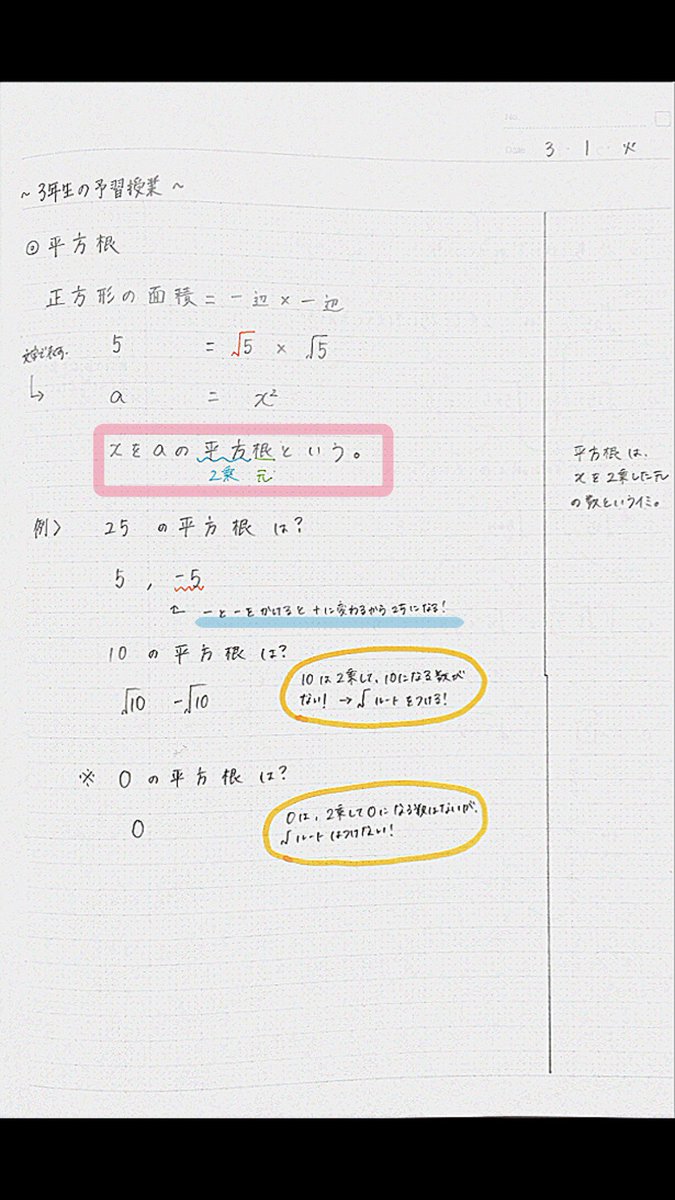 No.
Date 3・1・火
~3年生の予習授業~
⦿平方根
正方形の面積=一辺×一辺
5 = √5 × √5
↳ a = x²
xをaの平方根という。
2乗 元
平方根は、
xを2乗した元
の数というイミ。
例> 25の平方根は?
5, -5
← −と−をかけると+に変わるから25になる!
10の平方根は?
10は2乗して、10になる数が
ない!→√ルートをつける!
√10 -√10
※ 0の平方根は?
0
0は、2乗して0になる数はないが、
√ルートはつけない!